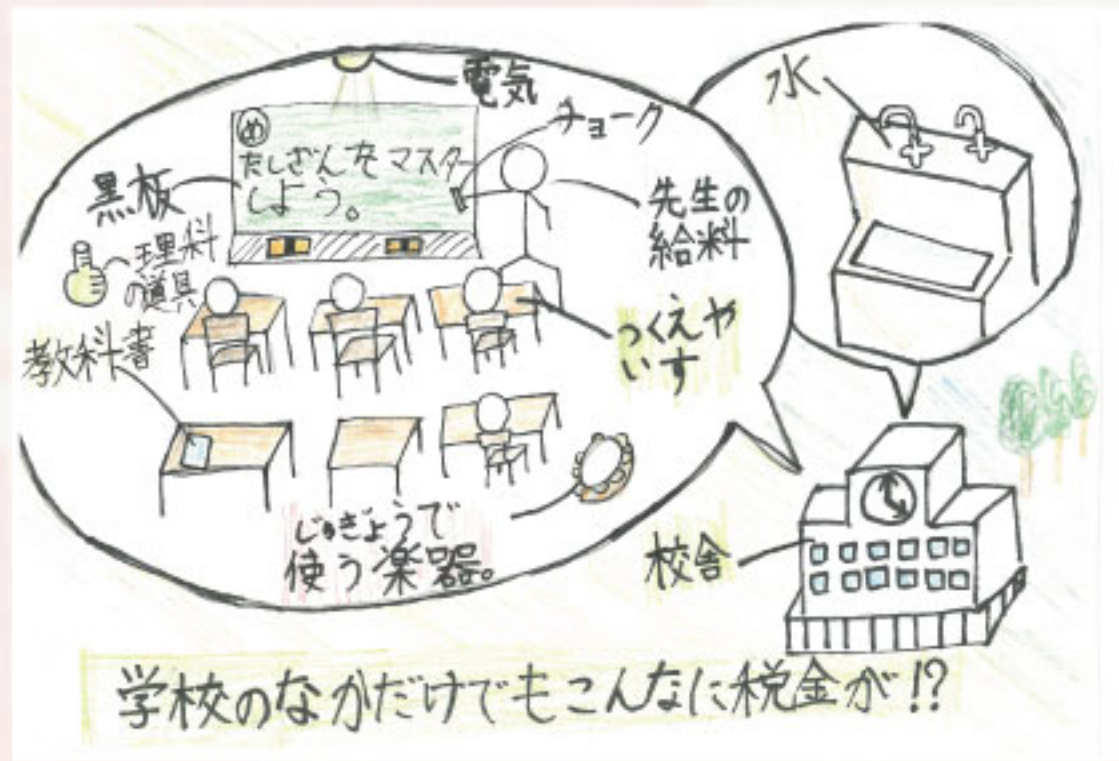 電気
チョーク
水
め
たしざんをマスター
しよう。
黒板
先生の
給料
理科
の道具
つくえや
いす
教科書
じゅぎょうで
使う楽器。
校舎
学校のなかだけでもこんなに税金が!?